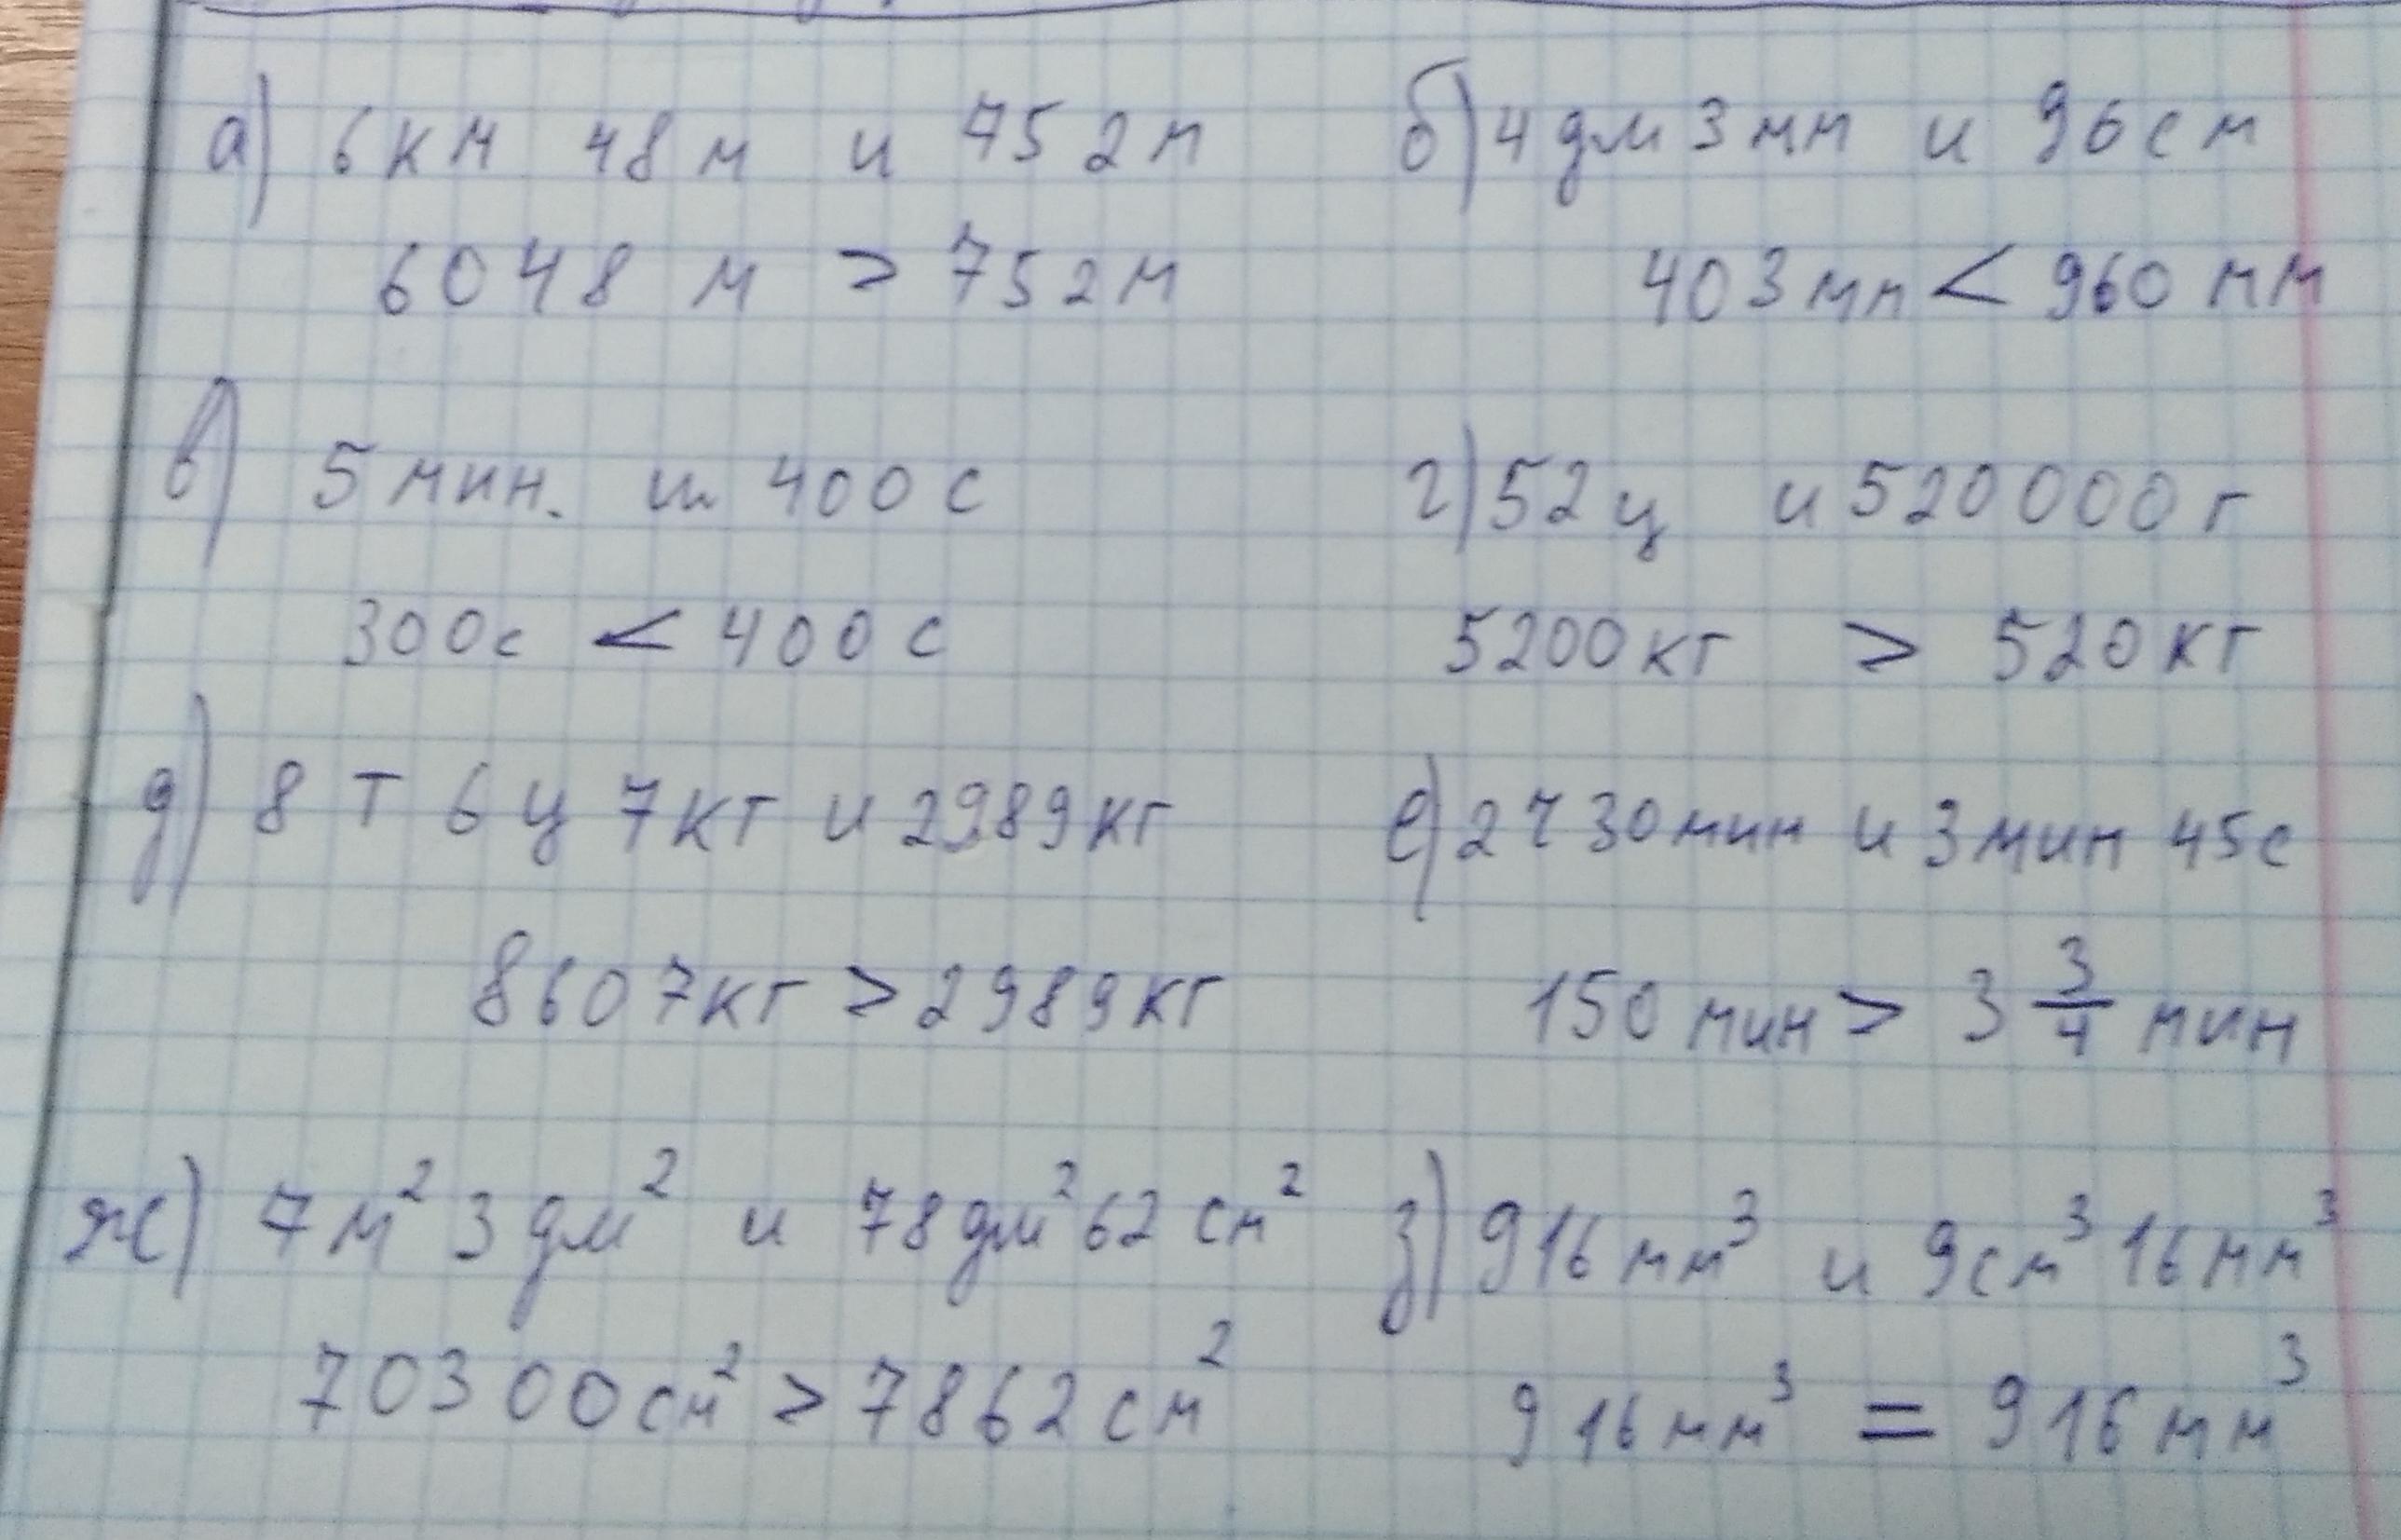 а) 6 км 48 м и 752 м
6048 м > 752 м
б) 4 дм 3 мм и 96 см
403 мм < 960 мм
в) 5 мин. и 400 с
300 с < 400 с
г) 52 ц и 520000 г
5200 кг > 520 кг
д) 8 т 6 ц 7 кг и 2989 кг
8607 кг > 2989 кг
е) 2 ч 30 мин и 3 мин 45 с
150 мин > 3 3/4 мин
ж) 7 м² 3 дм² и 78 дм² 62 см²
70300 см² > 7862 см²
з) 916 мм³ и 9 см³ 16 мм³
916 мм³ = 916 мм³